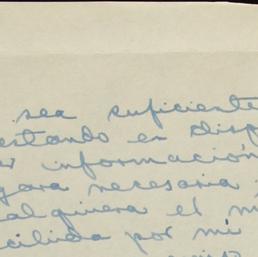 sea suficiente
estando en disp
información
gara necesaria
alquiera el m
cibida por mi